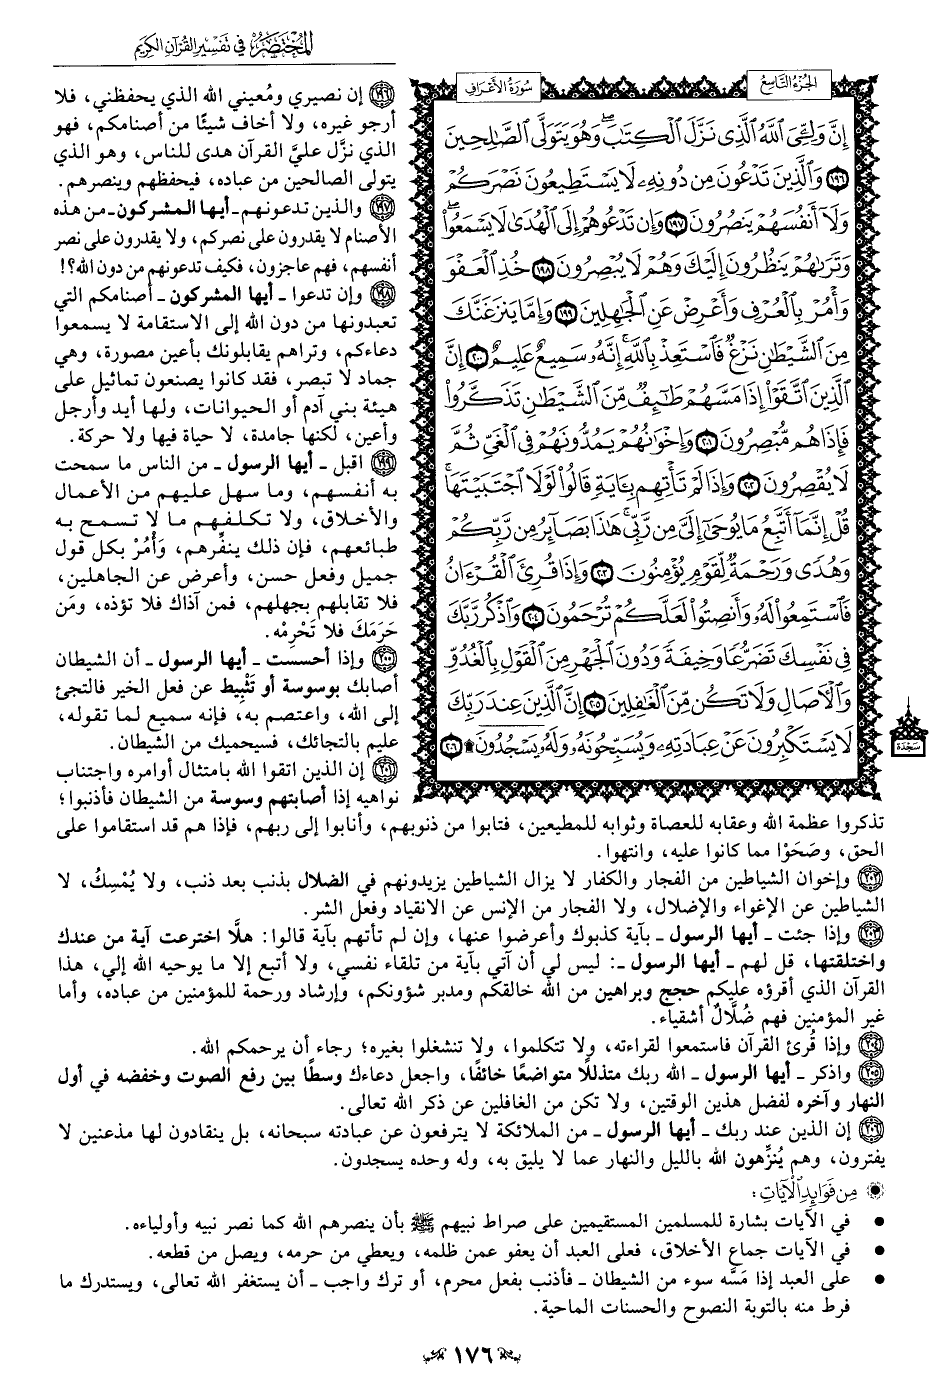 المختصر في تفسير القرآن الكريم
الجزء التاسع
سورة الأعراف
إِنَّ وَلِـِّۧيَ ٱللَّهُ ٱلَّذِي نَزَّلَ ٱلۡكِتَٰبَۖ وَهُوَ يَتَوَلَّى ٱلصَّٰلِحِينَ
١٩٦ وَٱلَّذِينَ تَدۡعُونَ مِن دُونِهِۦ لَا يَسۡتَطِيعُونَ نَصۡرَكُمۡ
وَلَآ أَنفُسَهُمۡ يَنصُرُونَ ١٩٧ وَإِن تَدۡعُوهُمۡ إِلَى ٱلۡهُدَىٰ لَا يَسۡمَعُواْۖ
وَتَرَىٰهُمۡ يَنظُرُونَ إِلَيۡكَ وَهُمۡ لَا يُبۡصِرُونَ ١٩٨ خُذِ ٱلۡعَفۡوَ
وَأۡمُرۡ بِٱلۡعُرۡفِ وَأَعۡرِضۡ عَنِ ٱلۡجَٰهِلِينَ ١٩٩ وَإِمَّا يَنزَغَنَّكَ
مِنَ ٱلشَّيۡطَٰنِ نَزۡغٞ فَٱسۡتَعِذۡ بِٱللَّهِۚ إِنَّهُۥ سَمِيعٌ عَلِيمٌ ٢٠٠ إِنَّ
ٱلَّذِينَ ٱتَّقَوۡاْ إِذَا مَسَّهُمۡ طَٰٓئِفٞ مِّنَ ٱلشَّيۡطَٰنِ تَذَكَّرُواْ
فَإِذَا هُم مُّبۡصِرُونَ ٢٠١ وَإِخۡوَٰنُهُمۡ يَمُدُّونَهُمۡ فِي ٱلۡغَيِّ ثُمَّ
لَا يُقۡصِرُونَ ٢٠٢ وَإِذَا لَمۡ تَأۡتِهِم بِـَٔايَةٖ قَالُواْ لَوۡلَا ٱجۡتَبَيۡتَهَاۚ
قُلۡ إِنَّمَآ أَتَّبِعُ مَا يُوحَىٰٓ إِلَيَّ مِن رَّبِّيۚ هَٰذَا بَصَآئِرُ مِن رَّبِّكُمۡ
وَهُدٗى وَرَحۡمَةٞ لِّقَوۡمٖ يُؤۡمِنُونَ ٢٠٣ وَإِذَا قُرِئَ ٱلۡقُرۡءَانُ
فَٱسۡتَمِعُواْ لَهُۥ وَأَنصِتُواْ لَعَلَّكُمۡ تُرۡحَمُونَ ٢٠٤ وَٱذۡكُر رَّبَّكَ
فِي نَفۡسِكَ تَضَرُّعٗا وَخِيفَةٗ وَدُونَ ٱلۡجَهۡرِ مِنَ ٱلۡقَوۡلِ بِٱلۡغُدُوِّ
وَٱلۡأٓصَالِ وَلَا تَكُن مِّنَ ٱلۡغَٰفِلِينَ ٢٠٥ إِنَّ ٱلَّذِينَ عِندَ رَبِّكَ
لَا يَسۡتَكۡبِرُونَ عَنۡ عِبَادَتِهِۦ وَيُسَبِّحُونَهُۥ وَلَهُۥ يَسۡجُدُونَۤ۩ ٢٠٦
سجدة
١٩٦ إن نصيري ومُعيني الله الذي يحفظني، فلا
أرجو غيره، ولا أخاف شيئًا من أصنامكم، فهو
الذي نزَّل عليَّ القرآن هدى للناس، وهو الذي
يتولى الصالحين من عباده، فيحفظهم وينصرهم.
١٩٧ والذين تدعونهم ـ أيها المشركون ـ من هذه
الأصنام لا يقدرون على نصركم، ولا يقدرون على نصر
أنفسهم، فهم عاجزون، فكيف تدعونهم من دون الله؟!
١٩٨ وإن تدعوا ـ أيها المشركون ـ أصنامكم التي
تعبدونها من دون الله إلى الاستقامة لا يسمعوا
دعاءكم، وتراهم يقابلونك بأعين مصورة، وهي
جماد لا تبصر، فقد كانوا يصنعون تماثيل على
هيئة بني آدم أو الحيوانات، ولها أيد وأرجل
وأعين، لكنها جامدة، لا حياة فيها ولا حركة.
١٩٩ اقبل ـ أيها الرسول ـ من الناس ما سمحت
به أنفسهم، وما سهل عليهم من الأعمال
والأخلاق، ولا تكلفهم ما لا تسمح به
طبائعهم، فإن ذلك ينفِّرهم، وَأْمُرْ بكل قول
جميل وفعل حسن، وأعرض عن الجاهلين،
فلا تقابلهم بجهلهم، فمن آذاك فلا تؤذه، ومَن
حَرَمَكَ فلا تَحْرِمْه.
٢٠٠ وإذا أحسست ـ أيها الرسول ـ أن الشيطان
أصابك بوسوسة أو تَثْبِيط عن فعل الخير فالتجئ
إلى الله، واعتصم به، فإنه سميع لما تقوله،
عليم بالتجائك، فسيحميك من الشيطان.
٢٠١ إن الذين اتقوا الله بامتثال أوامره واجتناب
نواهيه إذا أصابتهم وسوسة من الشيطان فأذنبوا؛
تذكروا عظمة الله وعقابه للعصاة وثوابه للمطيعين، فتابوا من ذنوبهم، وأنابوا إلى ربهم، فإذا هم قد استقاموا على
الحق، وصَحَوْا مما كانوا عليه، وانتهوا.
٢٠٢ وإخوان الشياطين من الفجار والكفار لا يزال الشياطين يزيدونهم في الضلال بذنب بعد ذنب، ولا يُمْسِكُ، لا
الشياطين عن الإغواء والإضلال، ولا الفجار من الإنس عن الانقياد وفعل الشر.
٢٠٣ وإذا جئت ـ أيها الرسول ـ بآية كذبوك وأعرضوا عنها، وإن لم تأتهم بآية قالوا: هلَّا اخترعت آية من عندك
واختلقتها، قل لهم ـ أيها الرسول ـ: ليس لي أن آتي بآية من تلقاء نفسي، ولا أتبع إلا ما يوحيه الله إلي، هذا
القرآن الذي أقرؤه عليكم حجج وبراهين من الله خالقكم ومدبر شؤونكم، وإرشاد ورحمة للمؤمنين من عباده، وأما
غير المؤمنين فهم ضُلَّالٌ أشقياء.
٢٠٤ وإذا قُرئ القرآن فاستمعوا لقراءته، ولا تتكلموا، ولا تنشغلوا بغيره؛ رجاء أن يرحمكم الله.
٢٠٥ واذكر ـ أيها الرسول ـ الله ربك متذللًا متواضعًا خائفًا، واجعل دعاءك وسطًا بين رفع الصوت وخفضه في أول
النهار وآخره لفضل هذين الوقتين، ولا تكن من الغافلين عن ذكر الله تعالى.
٢٠٦ إن الذين عند ربك ـ أيها الرسول ـ من الملائكة لا يترفعون عن عبادته سبحانه، بل ينقادون لها مذعنين لا
يفترون، وهم يُنزِّهون الله بالليل والنهار عما لا يليق به، وله وحده يسجدون.
من فوائد الآيات:
• في الآيات بشارة للمسلمين المستقيمين على صراط نبيهم ﷺ بأن ينصرهم الله كما نصر نبيه وأولياءه.
• في الآيات جماع الأخلاق، فعلى العبد أن يعفو عمن ظلمه، ويعطي من حرمه، ويصل من قطعه.
• على العبد إذا مَسَّه سوء من الشيطان ـ فأذنب بفعل محرم، أو ترك واجب ـ أن يستغفر الله تعالى، ويستدرك ما
فرط منه بالتوبة النصوح والحسنات الماحية.
١٧٦